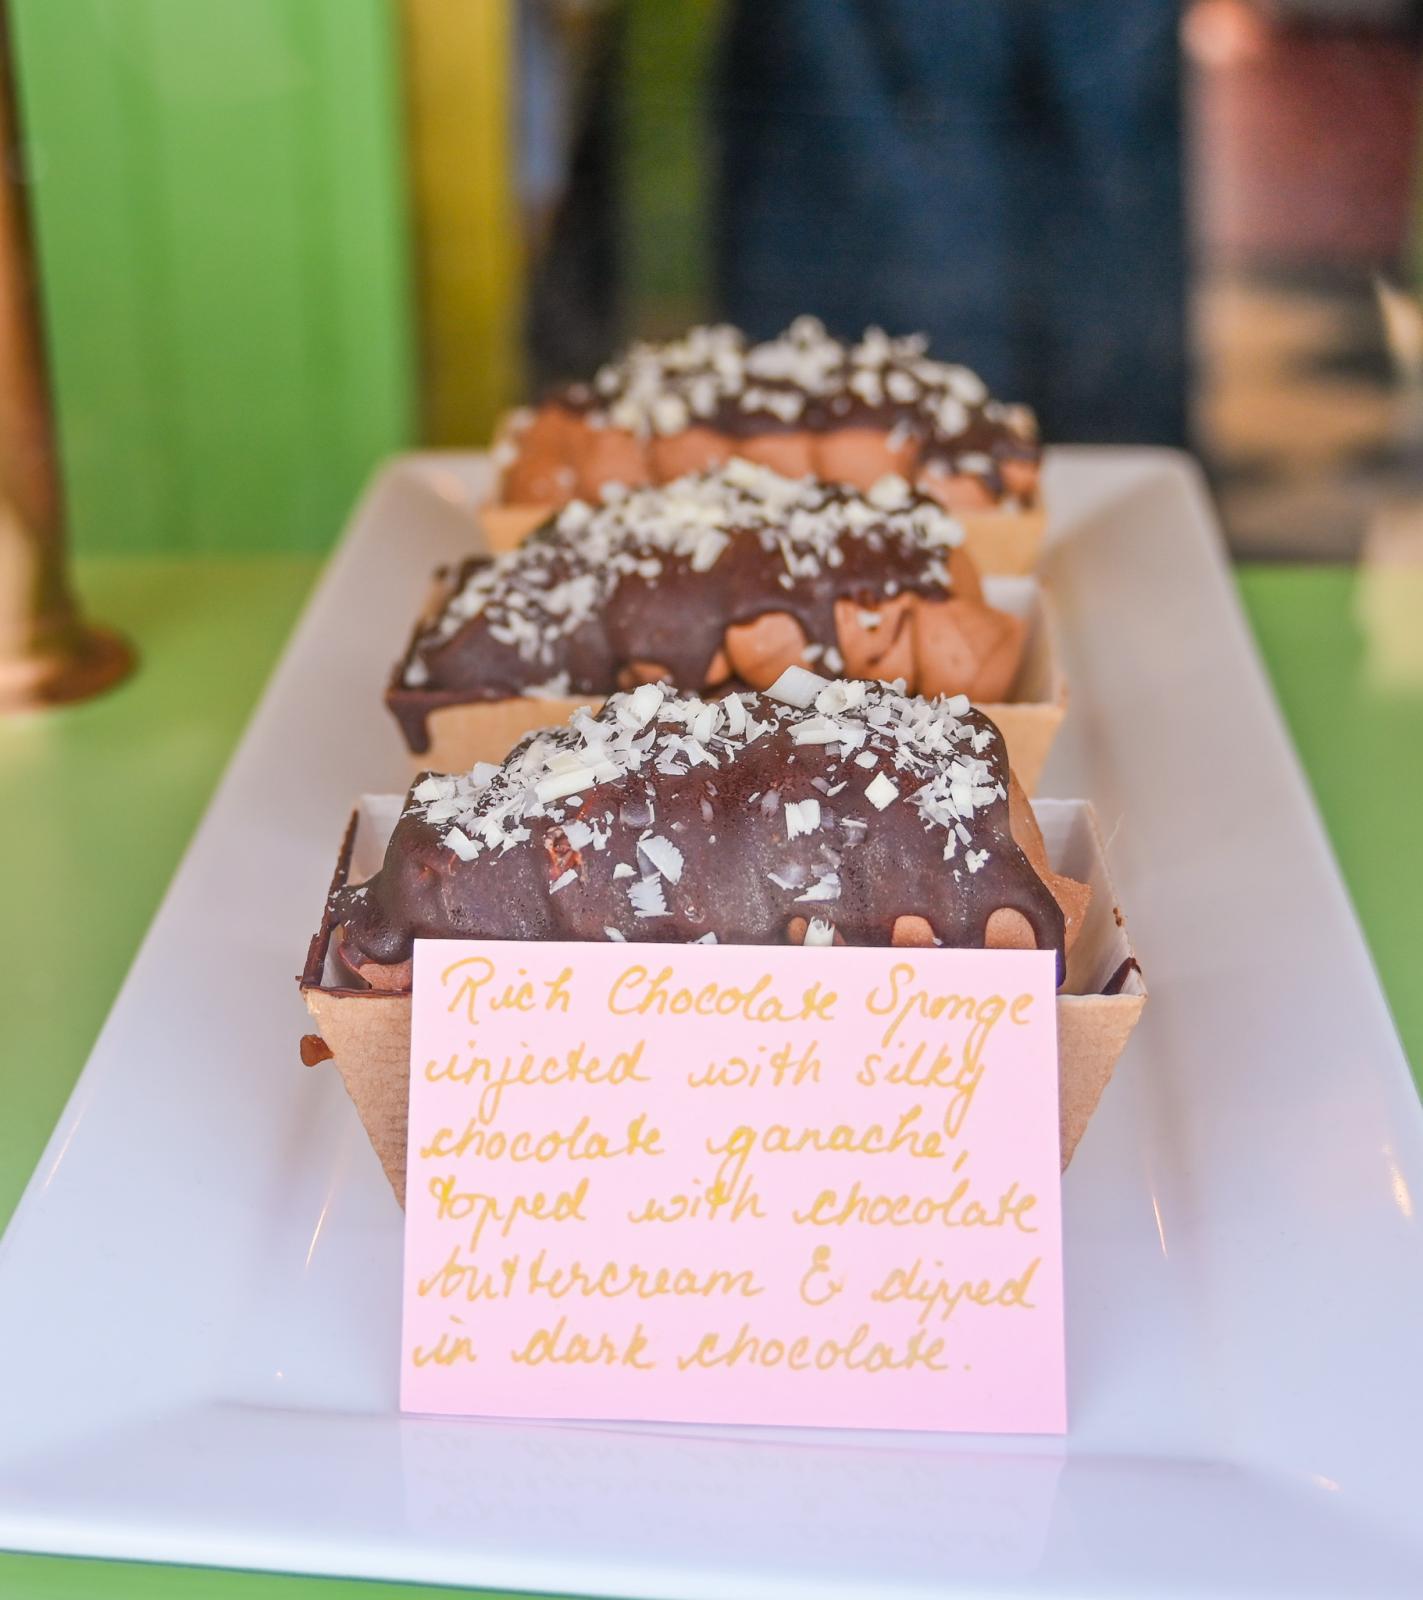 Rich Chocolate Sponge
injected with silky
chocolate ganache,
topped with chocolate
buttercream & dipped
in dark chocolate.